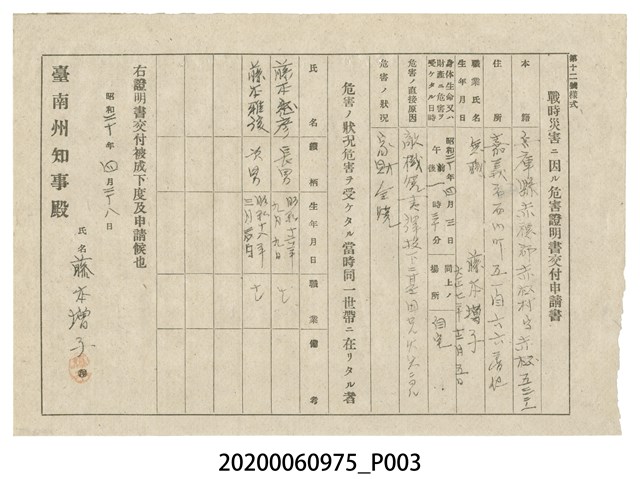 第十二號樣式
戰時災害ニ因ル危害證明書交付申請書
本籍
兵庫縣赤穗郡赤松村
住所
嘉義市
職業氏名
無職 藤本增子
生年月日
大正七年
身体生命又ハ財產ニ危害ヲ受ケタル日時
昭和二十年四月三日
午前後一時三十分
同上ノ場所
自宅
危害ノ直接原因
敵機
投下ニ
危害ノ狀況
家財全燒
危害ノ狀況危害ヲ受ケタル當時同一世帶ニ在リタル者
氏名 續柄 生年月日 職業 備考
藤本 長男 昭和 九月九日
藤本雅 次男 昭和十八年 三月
右證明書交付被成下度及申請候也
昭和二十年四月二十八日
氏名 藤本增子
臺南州知事殿
20200060975_P003